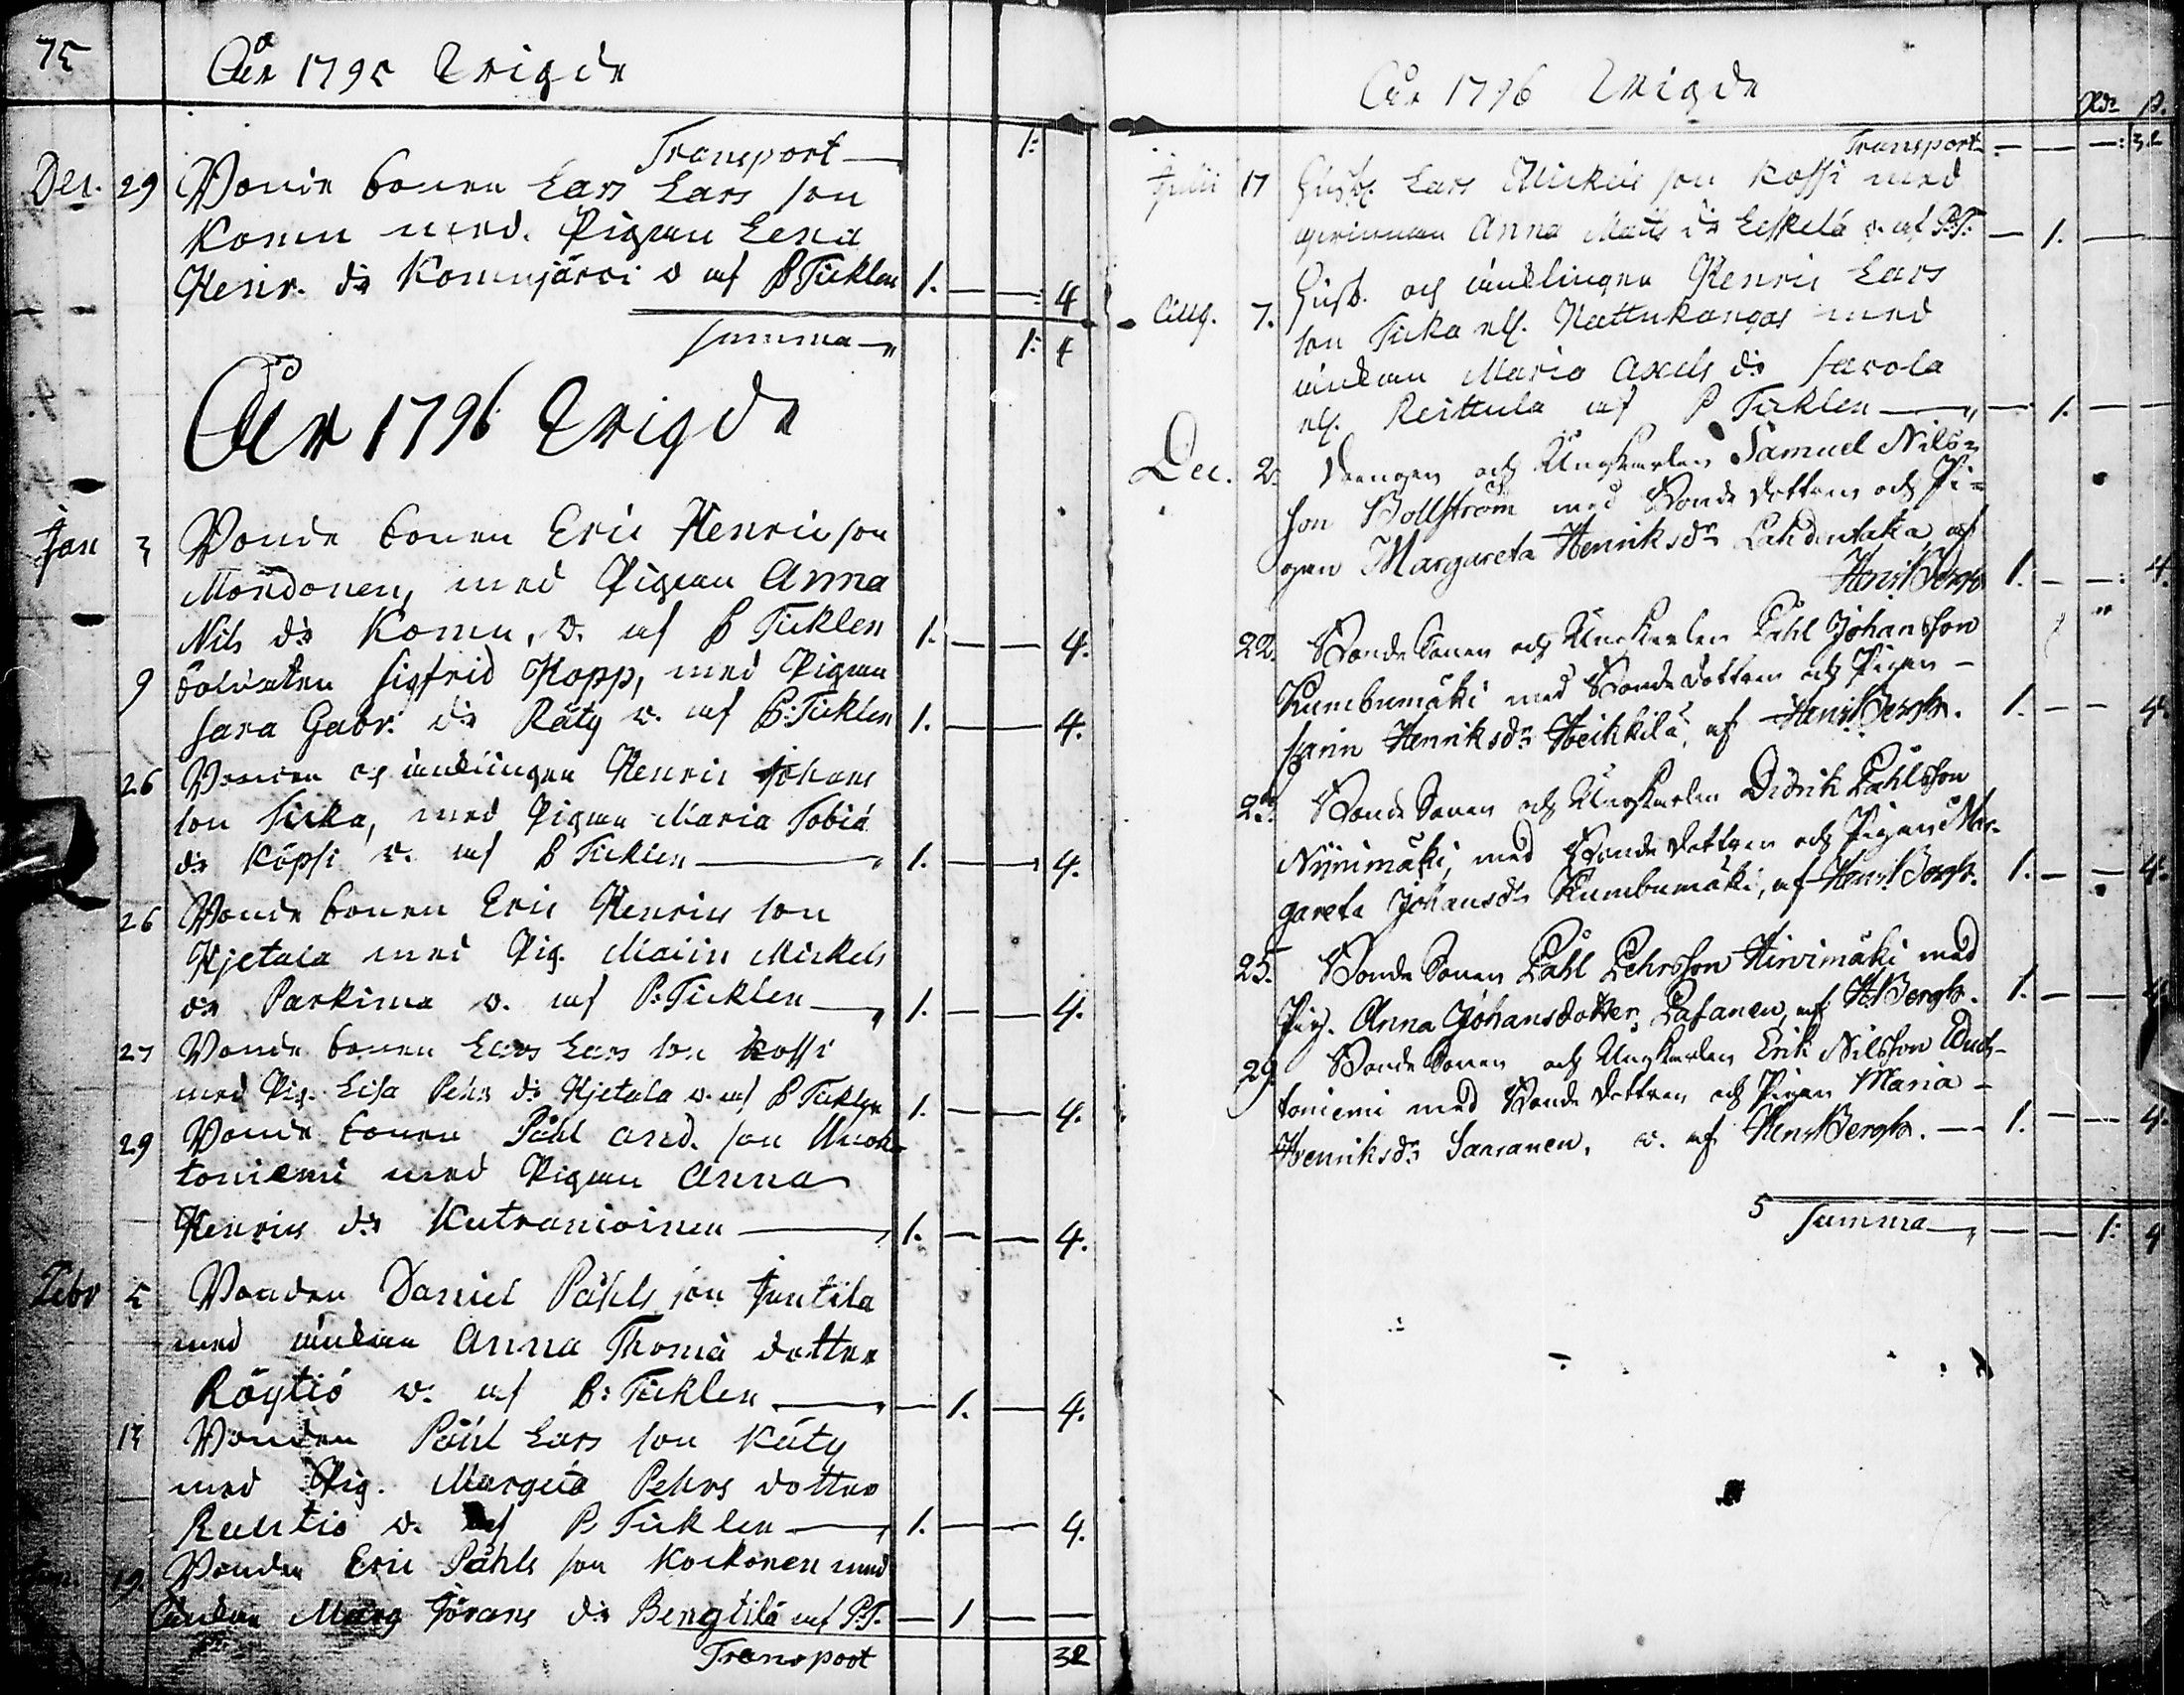 75
År 1795 Wigde
Transport 1:
Dec. 29 Bonde sonen Lars Lars son
Komu med Pigan Lena
Henr. dr Komujärvi v af P Ticklen 1. — —: 4
Summa 1: 4
År 1796 Wigde
Jan 3 Bonde sonen Eric Henric son
Mondonen, med Pigan Anna
Nils dr Komu, v. af P Ticklen 1. — — 4.
9 Soldaten Sigfrid Hopp, med Pigan
Sara Gabr. dr Räty v. af P: Ticklen 1. — — 4.
26 Bonden och Enklingen Henric Johans
son Ticka, med Pigan Maria Tobiæ
dr Köpsi v. af P Ticklen — 1. — — 4.
26 Bonde sonen Eric Henrics son
Hjetala med Pig. Maiin Mickels
dr Parkima v. af P: Ticklen — 1. — — 4.
27 Bonde sonen Lars Lars son Kossi
med Pig. Lisa Pehrs dr Hjetala v. af P Ticklen 1. — — 4.
29 Bonde sonen Påhl And. son Uuok-
toniemi med Pigan Anna
Henrics dr Kutranioinen — 1. — — 4.
Febr 5 Bonden Daniel Påhls son Juntila
med Enkan Anna Thomæ dotter
Röytiö v. af P: Ticklen — — 1. — 4.
14 Bonden Påhl Lars son Käty
med Pig. Margeta Pehrs dotter
Ruuhtio v. af P Ticklen — 1. — — 4.
19. Bonden Eric Påhls son Kockonen med
Enkan Marg Jörans dr Bengtilä af P.T. — 1 — —
Transport 32
År 1796 Wigde
Rdr s.
Transport — — —: 32
Julii 17 Husb. Lars Mickels son Kossi med
qvinnan Anna Matts dr Eskelä v. af P.T. — 1. —
Aug. 7. Husb. och Enklingen Henric Lars
son Ticka ell. Nattukangas med
Enkan Maria Axels dr Savola
ell. Reittula af P Ticklen — — 1. — —
Dec. 2. Drengen och Ungkarlen Samuel Nils=
son Bollström med Bonde dottern och Pi=
gan Margareta Henriksdr Lahdentaka, af
Henr. Bergh 1. — —: 4.
22. Bonde Sonen och Ungkarlen Påhl Johansson
Kumbumäki med Bonde dottern och Pigan —
Carin Henriksdr Heikkilä, af Henr. Bergh. 1. — — 4.
Bonde Sonen och Ungkarlen Didrik Påhlsson
Niinimäki, med Bonde dottern och Pigan Mar-
gareta Johansdr Kumbumäki, af Henr. Bergh. 1. — — 4.
25. Bonde Sonen Påhl Pehrsson Hirvimäki med
Pig. Anna Johansdotter Pasanen, af H. Bergh. 1. — — 4.
29. Bonde Sonen och Ungkarlen Erik Nilsson Uuok-
toniemi med Bonde dottren och Pigan Maria —
Henriksdr Saasanen, v. af Henr. Bergh. — 1. — — 4.
5
Summa — — 1: 4